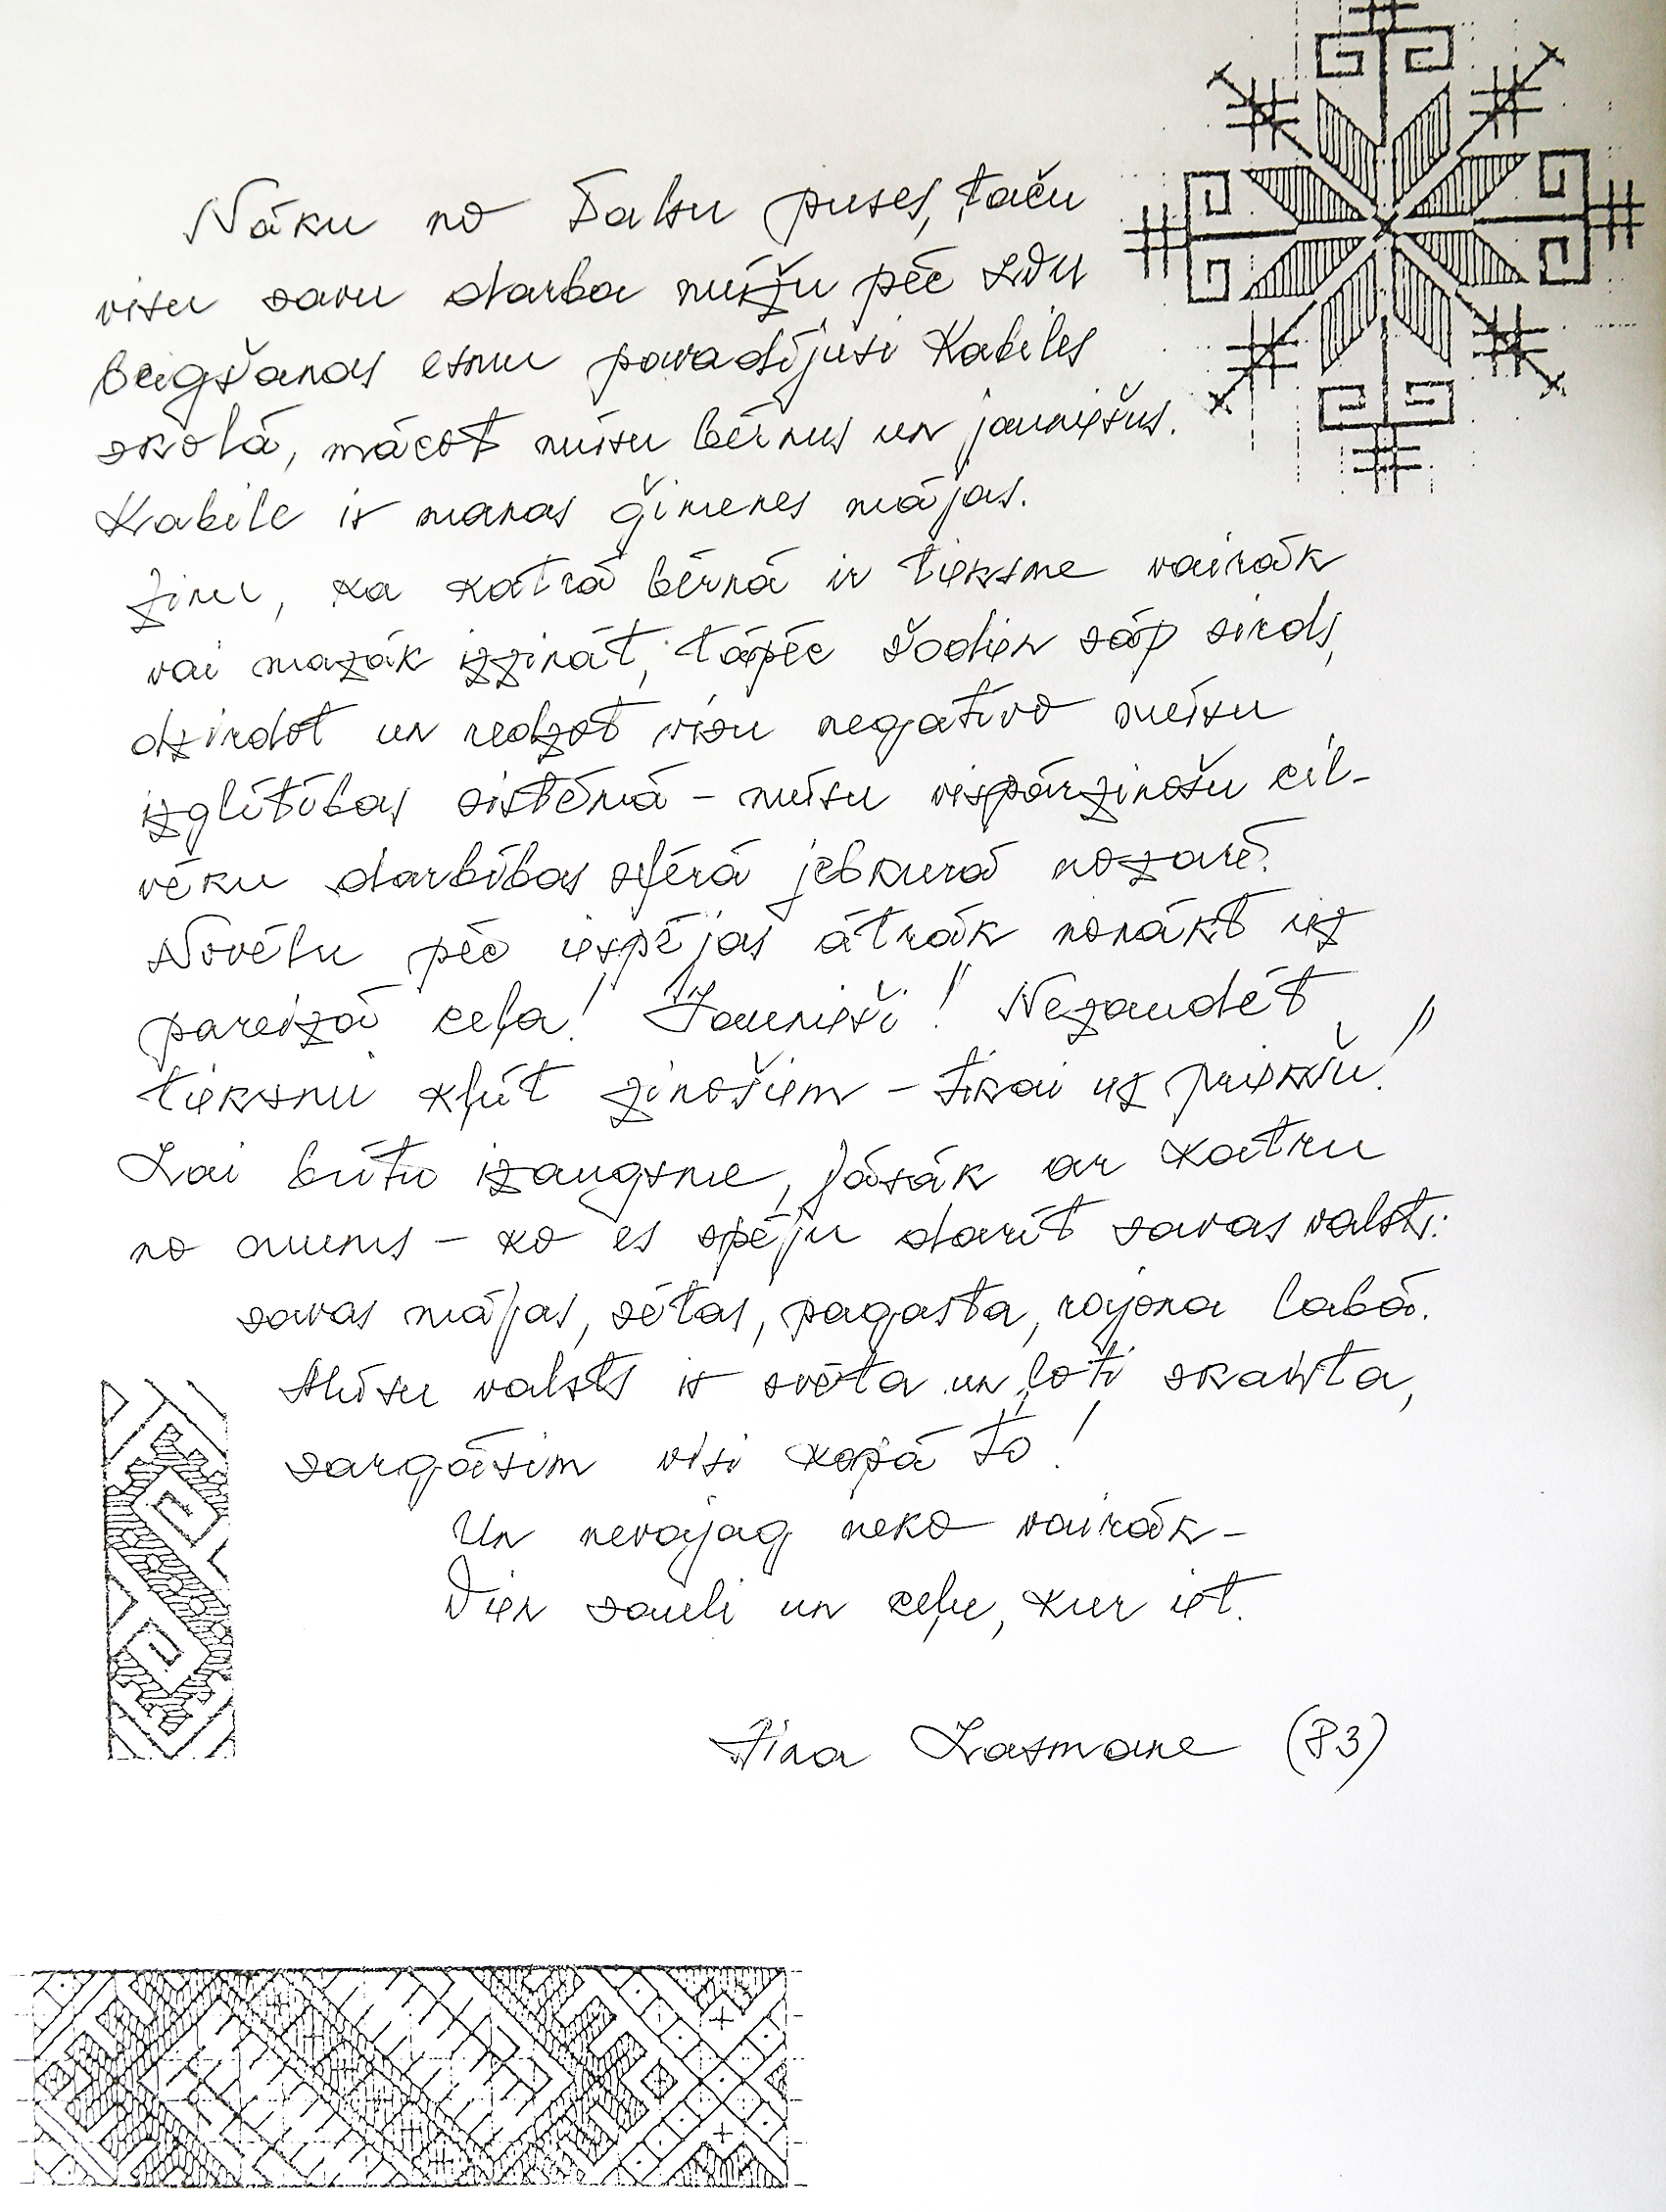 Nāku no Talsu puses, taču
visu savu darba mūžu pēc LVU
beigšanas esmu pavadījusi Kabiles
skolā, mācot mūsu bērnus un jauniešus.
Kabile ir manas ģimenes mājas.
Zinu, ka katrā bērnā ir tieksme vairāk
vai mazāk izzināt, tāpēc šodien sāp sirds,
dzirdot un redzot visu negatīvo mūsu
izglītības sistēmā – mūsu vispārzinošu cil-
vēku darbības sfērā jebkurā nozarē.
Novēlu pēc iespējas ātrāk nonākt uz
pareizā ceļa! Jaunieši! Nezaudēt
tieksmi kļūt zinošiem – tikai uz priekšu!
Lai būtu izaugsme, jāsāk ar katru
no mums – ko es spēju darīt savas valsts:
savas mājas, sētas, pagasta, rajona labā.
Mūsu valsts ir svēta un ļoti skaista,
sargāsim visi kopā to!
Un nevajag neko vairāk –
Vien sauli un ceļu, kur iet.
Aina Lasmane (83)